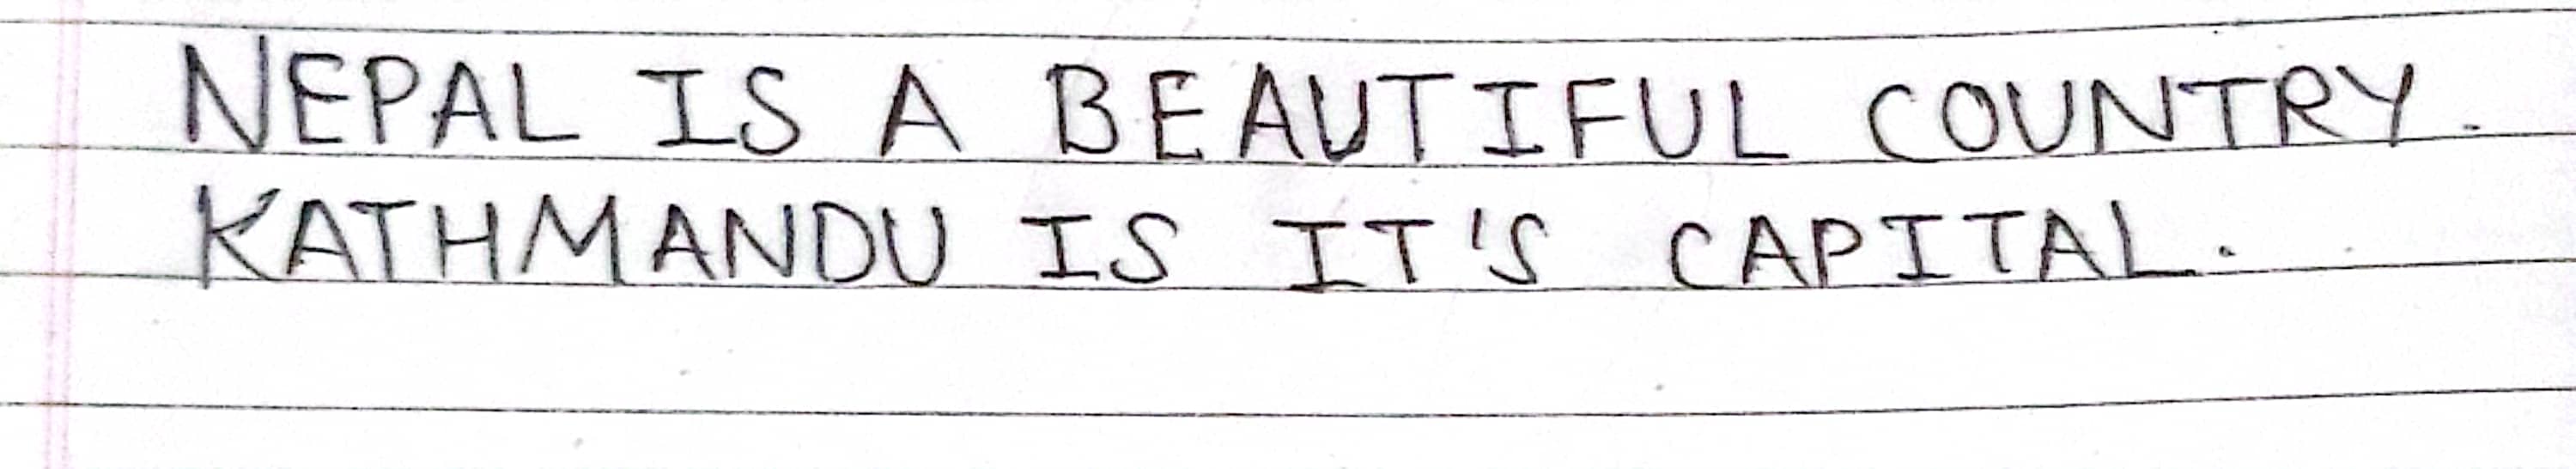 NEPAL IS A BEAUTIFUL COUNTRY.
KATHMANDU IS IT'S CAPITAL.